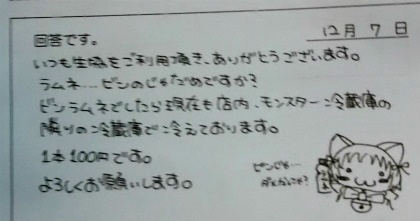 12月7日
回答です。
いつも生協をご利用頂き、ありがとうございます。
ラムネ…ビンのじゃだめですか?
ビンラムネでしたら現在も店内、モンスター冷蔵庫の
隣りの冷蔵庫で冷えております。
1本100円です。
よろしくお願いします。
ビンじゃ…
だめかしら?